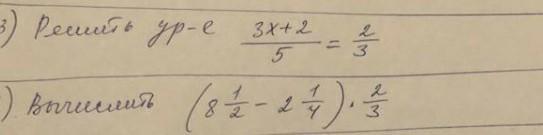 3) Решить ур-е (3x+2)/5 = 2/3
) Вычислить (8 1/2 - 2 1/4) · 2/3